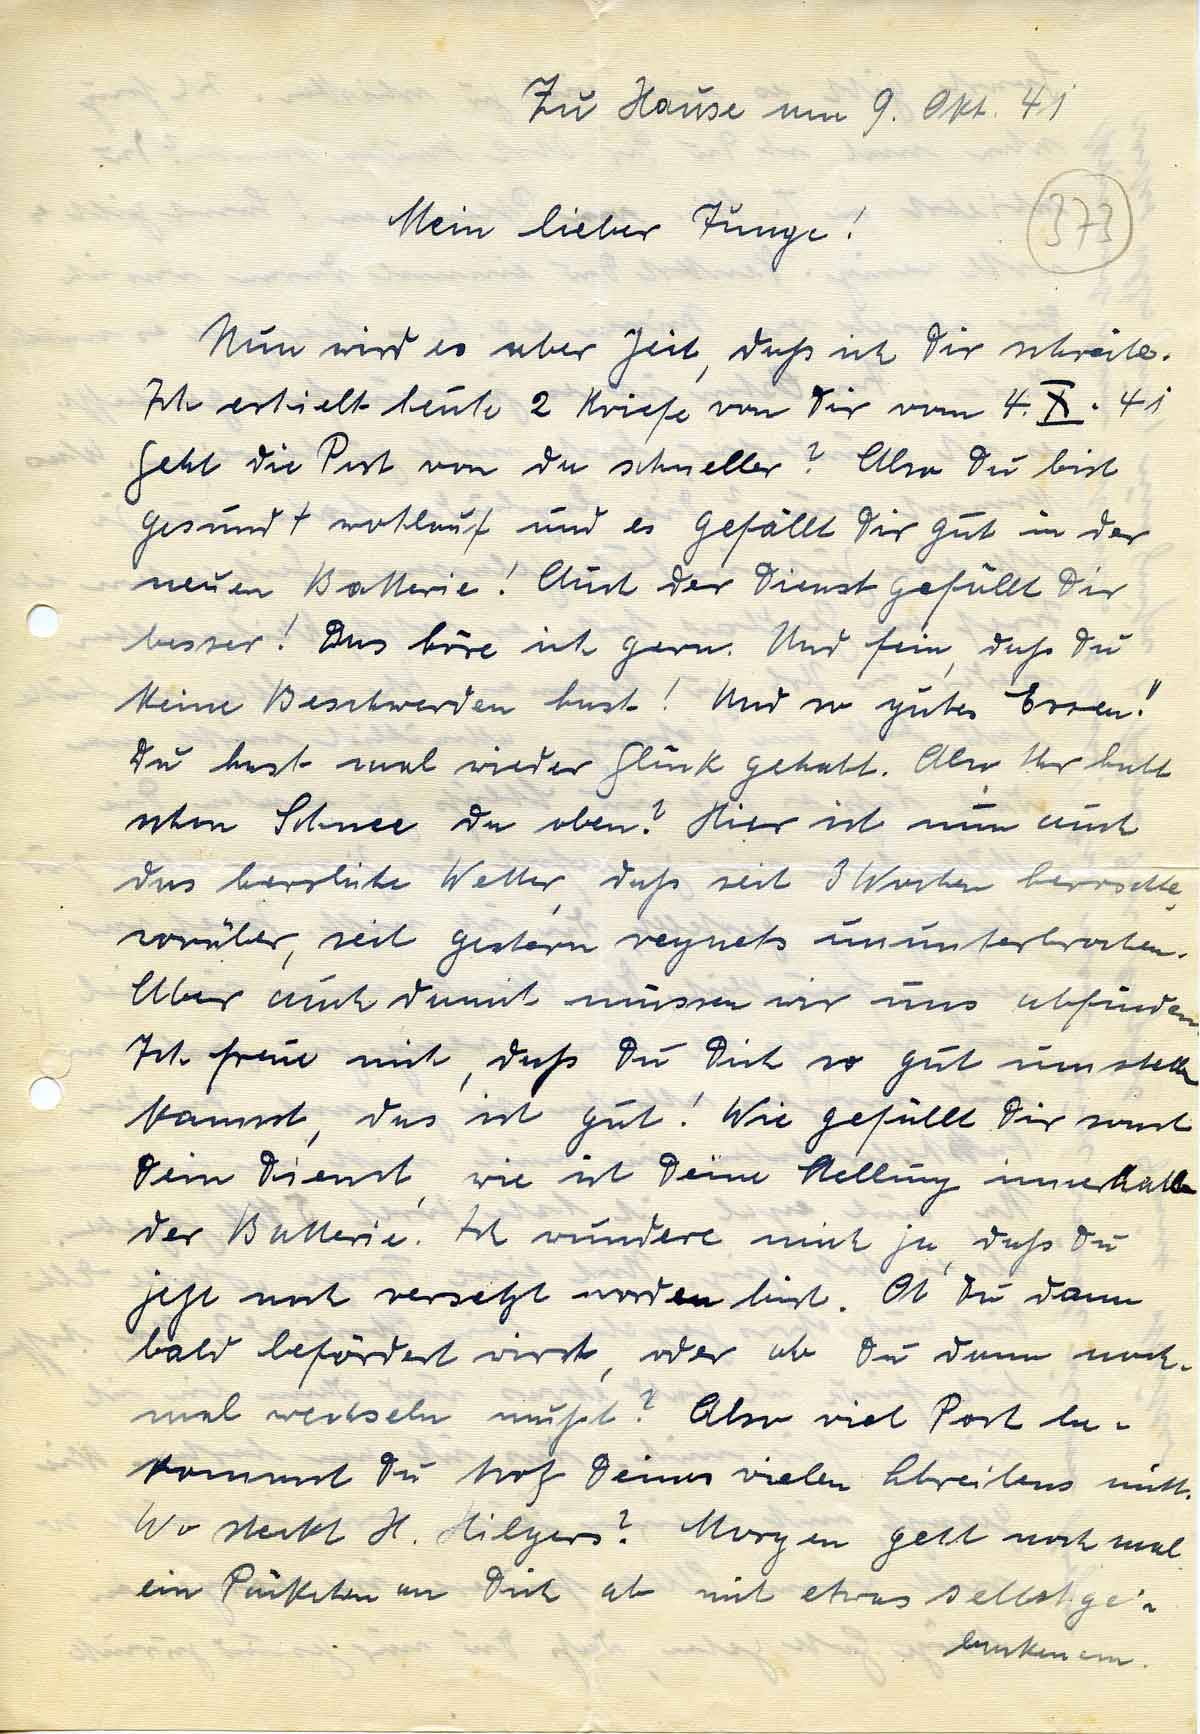 Zu Hause am 9. Okt. 41
373
Mein lieber Junge!
Nun wird es aber Zeit, daß ich Dir schreibe.
Ich erhielt heute 2 Briefe von Dir vom 4. X. 41
Geht die Post von da schneller? Also Du bist
gesund + wohlauf und es gefällt Dir gut in der
neuen Batterie! Auch der Dienst gefällt Dir
besser! Das höre ich gern. Und fein, daß Du
keine Beschwerden hast! Und so gutes Essen!!
Du hast mal wieder Glück gehabt. Also Ihr habt
schon Schnee da oben? Hier ist nun auch
das herrliche Wetter, daß seit 3 Wochen herrschte,
vorüber, seit gestern regnets ununterbrochen.
Aber auch damit müssen wir uns abfinden.
Ich freue mich, daß Du Dich so gut umstellen
kannst, das ist gut! Wie gefällt Dir sonst
Dein Dienst, wie ist Deine Stellung innerhalb
der Batterie. Ich wundere mich ja, daß Du
jetzt noch versetzt worden bist. Ob Du dann
bald befördert wirst, oder ob Du dann noch-
mal wechseln mußt? Also viel Post be-
kommst Du trotz Deines vielen Schreibens nicht.
Wo steckt H. Hilgers? Morgen geht noch mal
ein Päckchen an Dich ab mit etwas selbstge-
backenem.